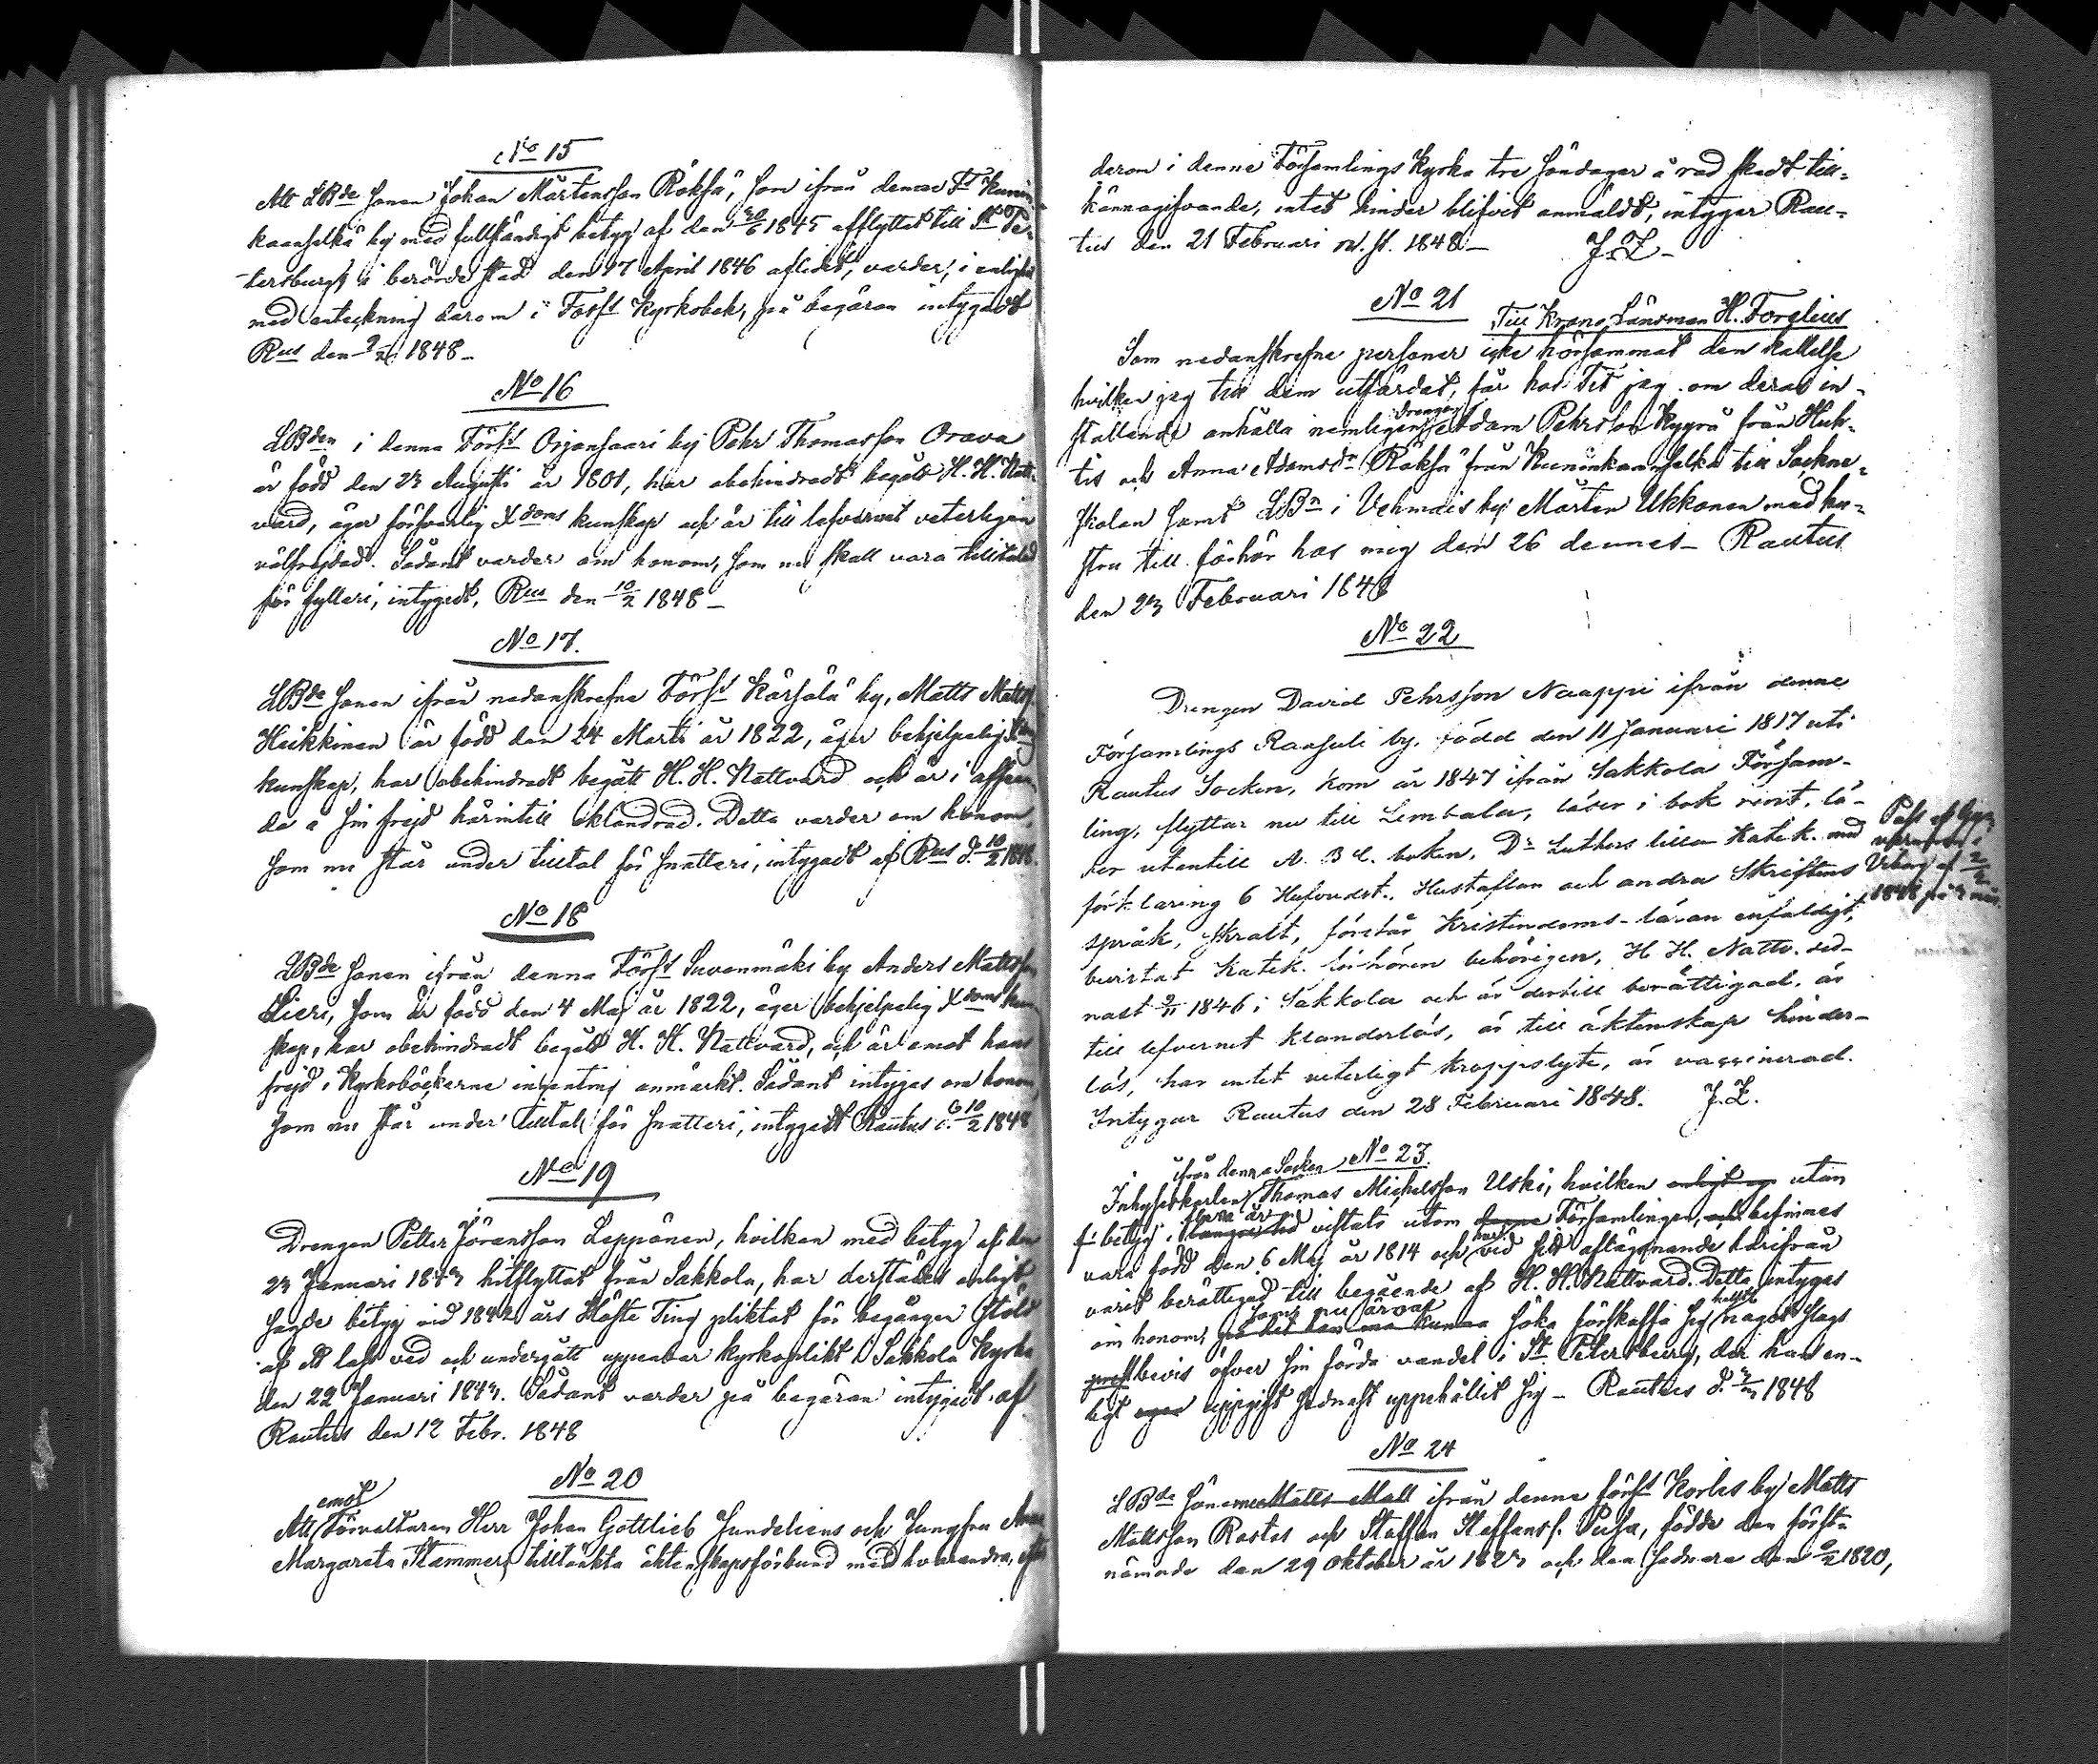 No 15
Att LBde sonen Johan Mårtensson Räksä, som ifrån denna Fs
kaanselkä by med fullständigt betyg af den 30/6 1845 afflyttat till St Pe-
tersburg, i berörde stad den 17 April 1846 aflidit, varder, i enlighet
med anteckning derom i Förs. Kyrkobok, på begäran intygadt
Rus den 9/2 1848 –
No 16
LBden i denna Förs. Orjansaari by Pehr Thomasson Orava
är född den 23 Augusti år 1801, har obehindradt begått H. H. Natt-
vard, äger försvarlig Xdoms kunskap och är till lefvernet veterligen
välfrejdad. Sådant varder om honom, som nu skall vara tilltalad
för fylleri, intygadt, Rus den 10/2 1848 –
No 17.
LBde sonen ifrån nedanskrefne Förs. Kärsälä by, Matts Matts.
Heikkinen är född den 24 Marti år 1822, äger behjelpelig
kunskap, har obehindradt begått H. H. Nattvard och är i afseen-
de å sin frejd härintill oklandrad. Detta varder om honom,
som nu står under tilltal för snatteri, intygadt af Rus d. 10/2 1848.
No 18
LBde sonen ifrån denna Förs. Suvenmäki by Anders Mattsson
Lieri, som är född den 4 Maj år 1822, äger behjelpelig Xdoms kun
skap, har obehindradt begått H. H. Nattvard, och är emot hans
frejd i Kyrkoböckerne ingenting anmärkt. Sådant intygas om honom,
som nu står under tilltal för snatteri, intygadt Rautus d. 10/2 1848
No 19
Drengen Petter Jöransson Leppänen, hvilken med betyg af den
23 Januari 1843 hitflyttat från Sakkola, har derstädes enligt
sagde betyg vid 1842 års Höste Ting pliktat för begången stöld
af ett lass ved och undergått uppenbar kyrkoplikt i Sakkola Kyrka
den 22 Januari 1843. Sådant varder på begäran intygadt af
Rautus den 12 Febr. 1848
No 20
emot
Att Förvaltaren Herr Johan Gottlieb Sundelius och Jungfru
Margareta Stammers tilltänkta äktenskapsförbund med hvarandra,
derom i denne Församlings Kyrka tre söndagar å rad skedt till-
kännagifvande, intet hinder blifvit anmäldt, intygar Rau-
tus den 21 Februari 1848 – J. L. –
No 21
Till Krono Länsman H. Forelius
Som nedanskrefne personer icke hörsammat den kallelse
hvilken jag till dem utfärdat, får hos Tit jag om deras in-
drengen
ställande anhålla nemligen Adam Pehrsson Kyyrä från Huh-
tis och Anna Adamsdr Räksä från Kuninkaanselkä till Sockne-
skolan samt LBn i Vehmais by Mårten Ukkonen med hu-
stru till förhör hos mig den 26 dennes – Rautus
den 23 Februari 1848
No 22
Drengen David Pehrsson Naappi ifrån denne
Församlings Raasuli by, född den 11 Januari 1817 uti
Rautus Socken, kom år 1847 ifrån Sakkola Försam-
ling, flyttar nu till Lembala, läser i bok rent, lä-
ser utantill A. B C. boken, Dr Luthers lilla Katek. med
förklaring 6 Hufvudst., Hustaflan och andra Skriftens
språk, skralt, förstår Kristendoms-läran enfaldigt,
bevistat Katek. förhören behörigen, H. H. Nattv. sed-
nast 2/11 1846 i Sakkola och är dertill berättigad, är
till lefvernet klanderlös, är till äktenskap hinder-
lös, har intet veterligt kroppslyte, är vaccinerad.
Intygar Rautus den 28 Februari 1848. J. L.
Pass af
Viborg af 2/2
1848 på 3 mån.
No 23.
ifrån denna Socken
Inhyseskarlen Thomas Michelsson Uski, hvilken utan
flera år
f. betyg i vistats utom denne Församlingen, och befinnes
har
vara född den 6 Maj år 1814 och vid sitt aflägsnande härifrån
varit berättigad till begående af H. H. Nattvard. Detta intygas
som nu ärnar
om honom, på det han må kunna söka förskaffa sig något slags
bevis öfver sin förda vandel i St. Petersburg, der han en-
ligt uppgift sednast uppehållit sig – Rautus d. 3/3 1848
No 24
LBde Sönerne Matts Matt ifrån denne Förs. Korles by Matts
Mattsson Rastas och Staffan Staffanss. Pusa, födde den först-
nämnde den 29 Oktober år 1823 och den sednare den 9/2 1820,